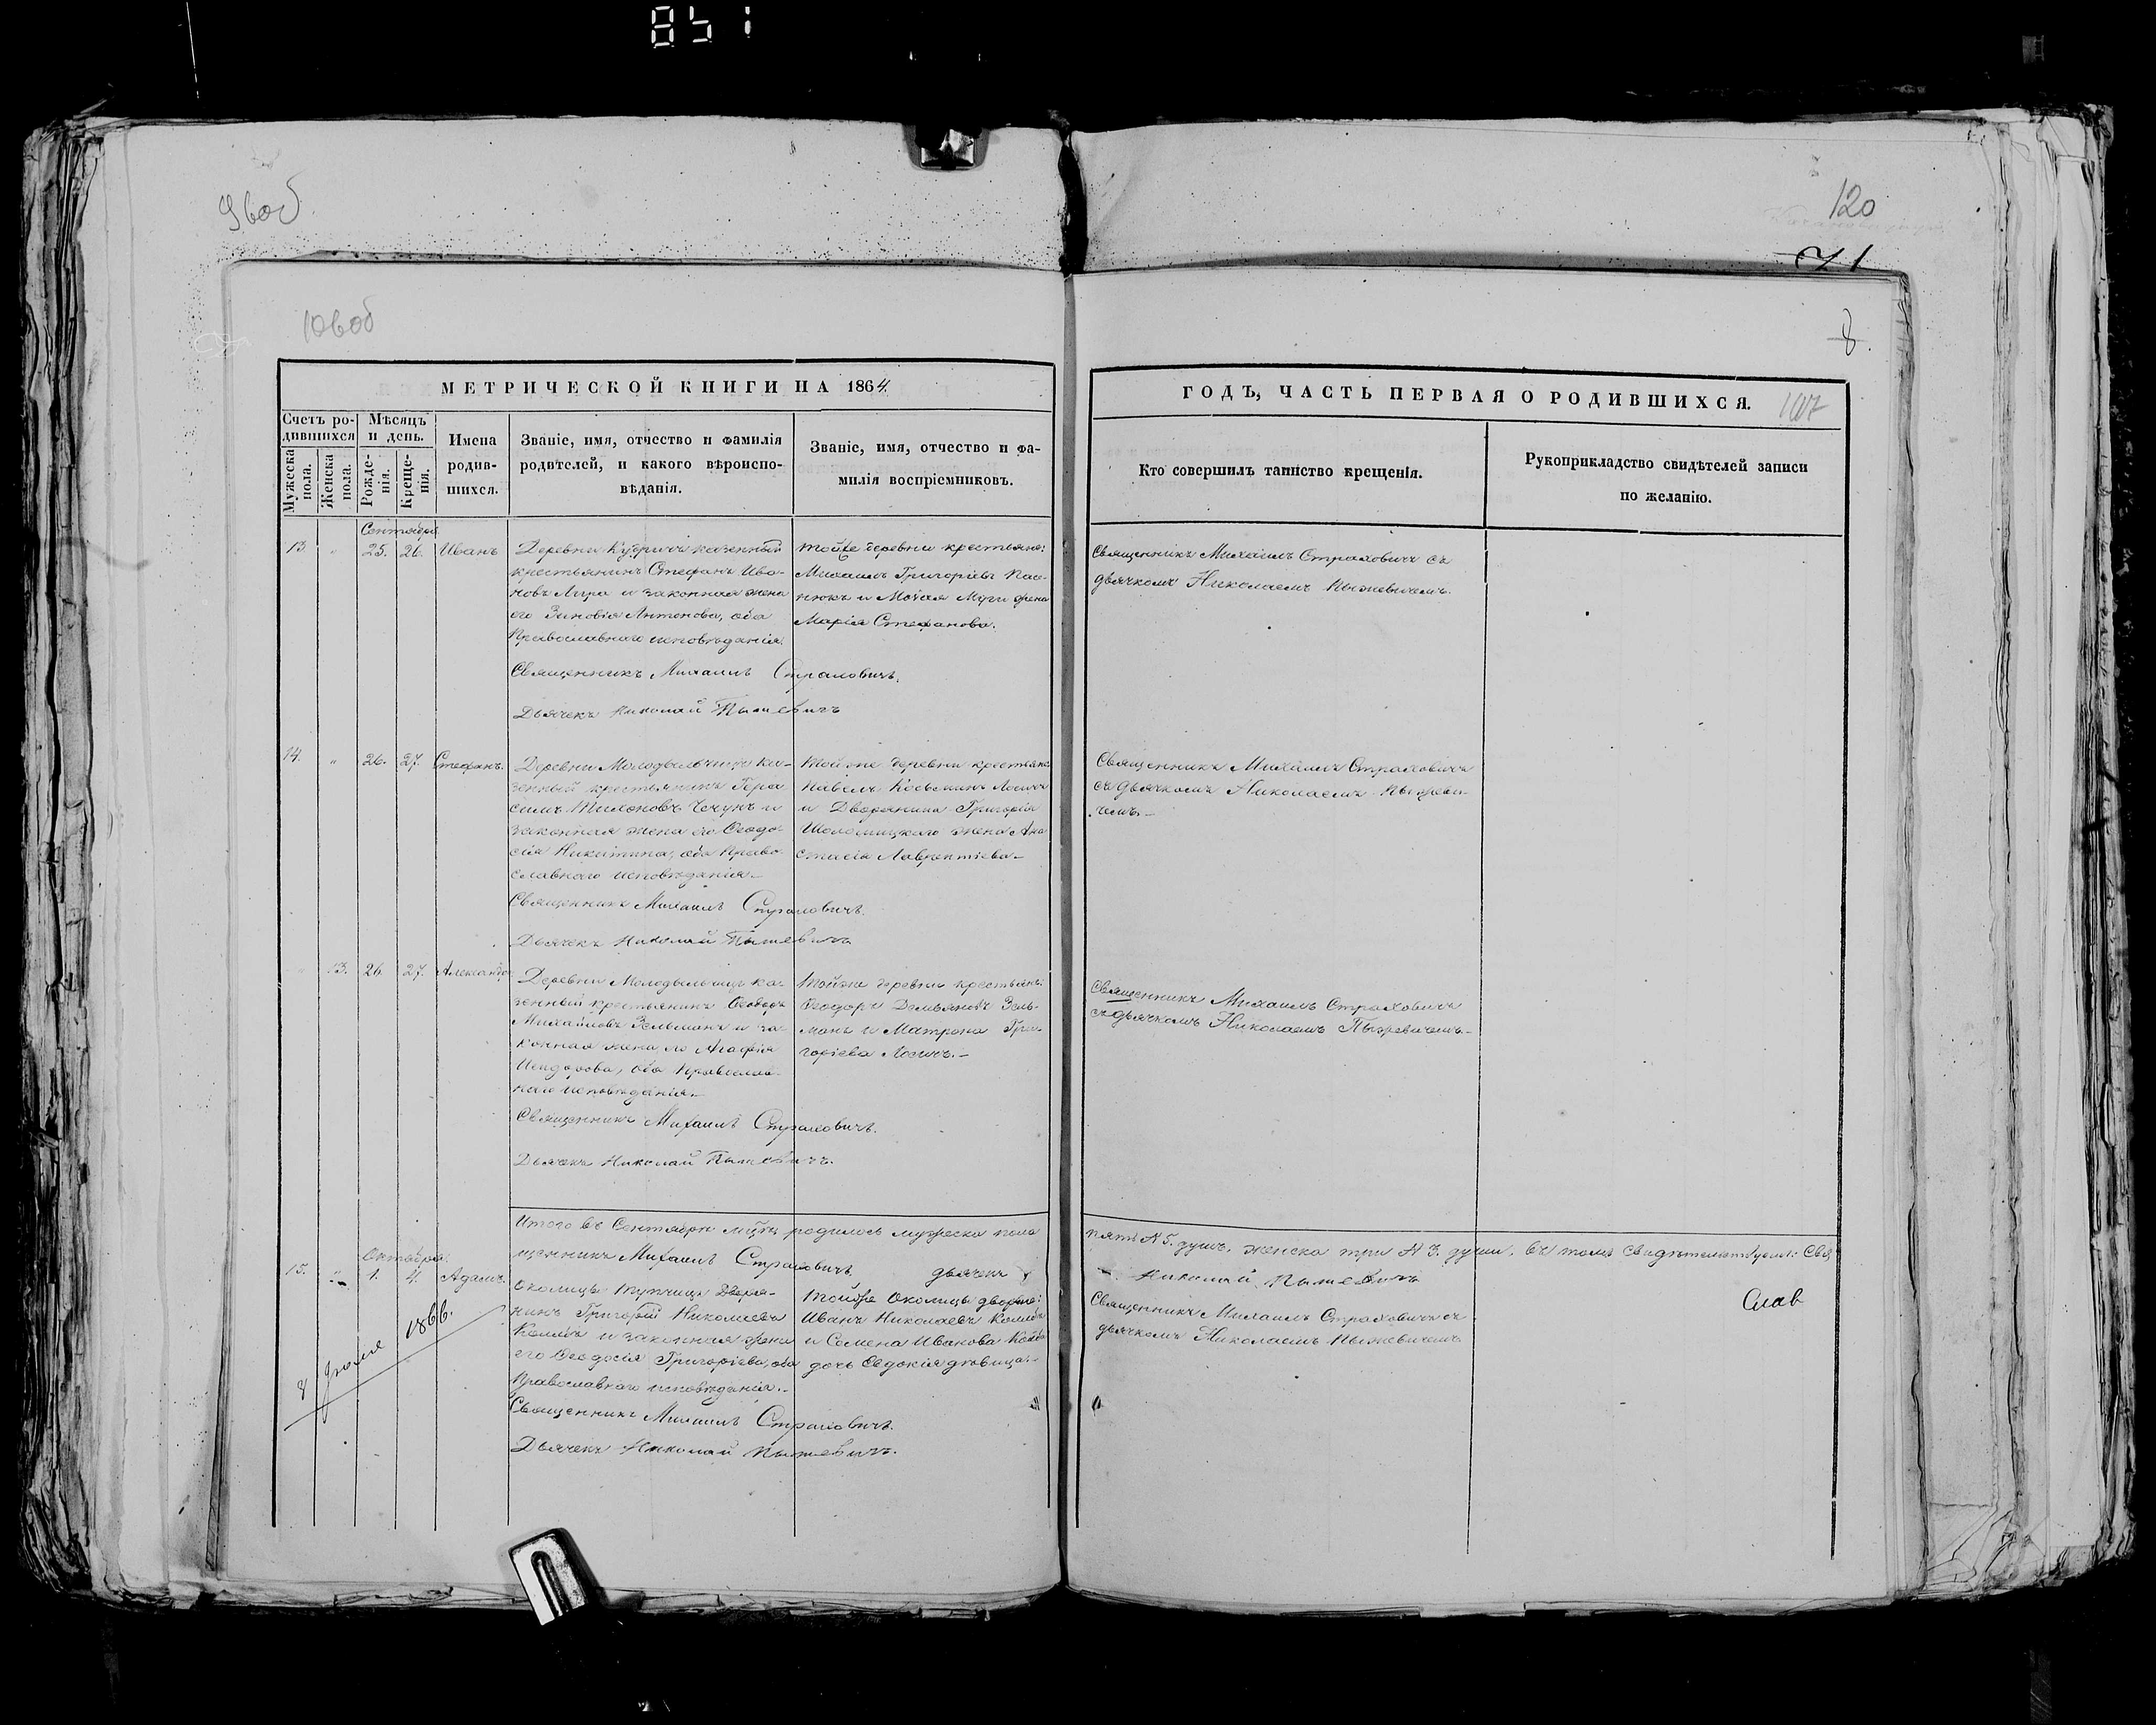 851
96об
120
71
106об
8.
МЕТРИЧЕСКОЙ КНИГИ НА 1864
ГОДЪ, ЧАСТЬ ПЕРВАЯ О РОДИВШИХСЯ.
107
Счетъ родившихся
Мужеска пола.
Женска пола.
Мѣсяцъ и день.
Рожденія.
Крещенія.
Имена родившихся.
Званіе, имя, отчество и фамилія
родителей, и какого вѣроиспо-
вѣданія.
Званіе, имя, отчество и фа-
милія воспріемниковъ.
Кто совершилъ таинство крещенія.
Рукоприкладство свидѣтелей записи
по желанію.
Сентября
13. " 25. 26. Иванъ
Деревни Кудричъ казенный
крестьянинъ Стефанъ Ива-
новъ Лира и законная жена
его Зиновія Антонова, оба
Православнаго исповѣданія.
Священникъ Михаилъ Страховичъ.
Дьячекъ Николай Пыжевичъ
тойже деревни крестьяне:
Михаилъ Григоріевъ
Марія Стефанова.
Священникъ Михаилъ Страховичъ съ
дьячкомъ Николаемъ Пыжевичемъ.
14. " 26. 27. Стефанъ.
Деревни Молодыльчицъ ка-
зенный крестьянинъ Гера
симъ Тихоновъ Чечунъ и
законная жена его Ѳеодо-
сія Никитина, оба Право-
славнаго исповѣданія.
Священникъ Михаилъ Страховичъ.
Дьячекъ Николай Пыжевичъ
Тойже деревни крестьяне
Павелъ Косьминъ Лосичъ
и Дворянина Григорія
Шоломицкаго жена Ана
стасія Лаврентіева
Священникъ Михаилъ Страховичъ
съ дьячкомъ Николаемъ Пыжеви-
чемъ.
13. 26. 27. Александра
Деревни Молодыльчицъ ка-
зенный крестьянинъ Ѳеодоръ
Михайловъ Зельманъ и за-
конная жена его Агафія
Исидорова, оба Православ-
наго исповѣданія.
Священникъ Михаилъ Страховичъ.
Дьячекъ Николай Пыжевичъ.
Тойже деревни крестьяне:
Ѳеодоръ Демьяновъ Зель-
манъ и Матрона Гри-
горіева Лосичъ.
Священникъ Михаилъ Страховичъ
съ дьячкомъ Николаемъ Пыжевичемъ.
Итого въ Сентябрѣ м-цѣ родилось мужеска пола
пять № 5. душъ, женска три № 3. души. въ томъ свидѣтельствуемъ: Свя
щенникъ Михаилъ Страховичъ. дьячекъ
Николай Пыжевичъ
Октября
15. " 1. 4. Адамъ.
Околицы Тупчицъ Дворя-
нинъ Григорій Николаевъ
Колбъ и законная жена
его Ѳеодосія Григоріева, оба
Православнаго исповѣданія.
Священникъ Михаилъ Страховичъ.
Дьячекъ Николай Пыжевичъ.
Тойже Околицы дворяне:
Иванъ Николаевъ Колбъ
и Семена Иванова Колба
дочь Евдокія дѣвица.
Священникъ Михаилъ Страховичъ съ
дьячкомъ Николаемъ Пыжевичемъ
Слав
8 1866.